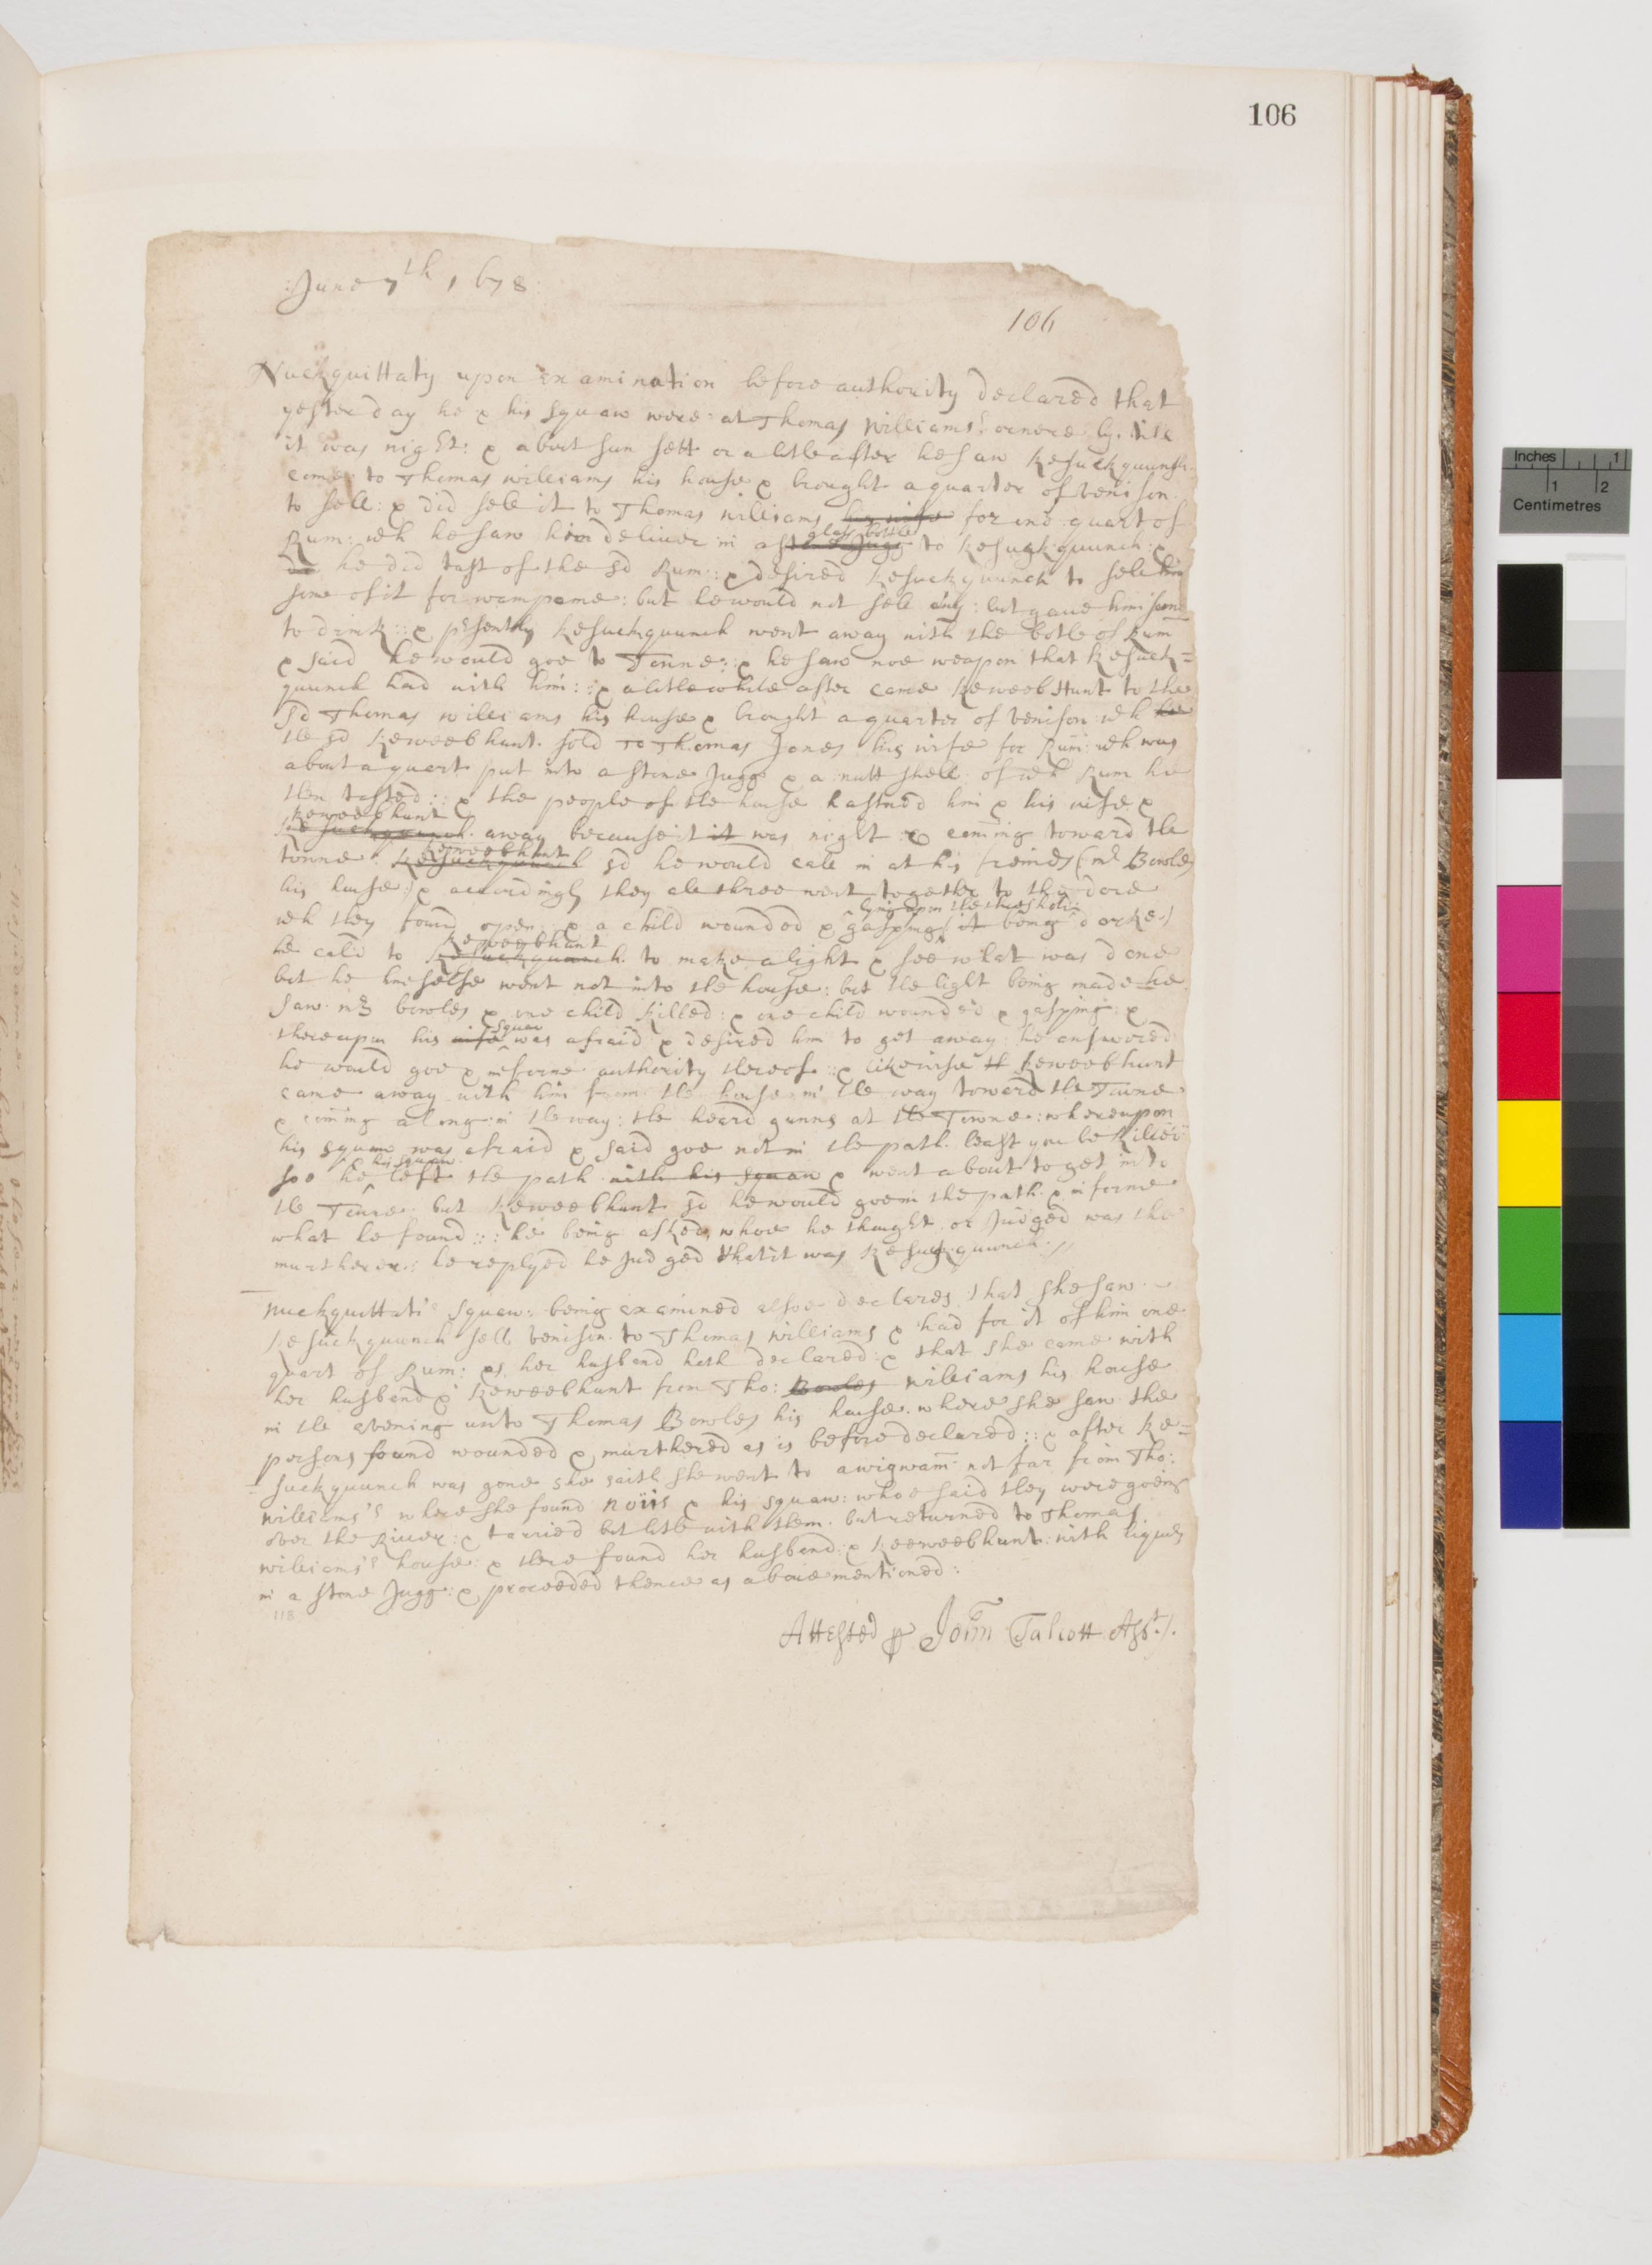 106
June 7th 1678
106
Nuckquittaty upon examination before authority declared that
yesterday he & his squaw were: at Thomas Williams's or nere by. till
it was night: & about sun sett or a litle after he saw Kesuckquunch
come to Thomas williams his house & brought a quarter of venison.
to sell: & did sell it to Thomas williams his wife for one quart of
Rum: wh he saw him deliver in a stone Jugg glass bottle to Kesuckquunch: &
he did tast of the sd Rum:: & desired Kesuckquunch to sell him
some of it for wampome: but he would not sell any: but gave him some
to drink:: & psently Kesuckquunch went away with the botle of Rum
& said he would goe to Towne:: & he saw noe weapon that Kesuck=
quunch had with him:: & a litle while after came Keweebhunt to the
sd Thomas williams his house & brought a quarter of venison wh he
the sd Keweebhunt. sold to Thomas Jones his wife for Rum: wh was
about a quart put into a stone Jugg & a nutt shell of wh Rum he
then tasted:: & the people of the house hastned him & his wife &
Keweebhunt
Kesuckquunch. away because it it was night & coming toward the
Keweebhunt
towne Kesuckquunch sd he would call in at his freinds (mr Bowles
his house) & accordingly they all three went together to the dore
lying upon the threshold
wh they found open & a child wounded & gasping (it being darke)
Keweebhunt
he cald to Kesuckquunch. to make a light & see what was done
but he himselfe went not into the house: but the light being made he
saw mrs bowles & one child killed: & one child wounded & gasping: &
squaw
thereupon his wife was afraid & desired him to get away: he answered
he would goe & informe authority thereof:: & likewise Keweebhunt
came away with him from the house in the way toward the Towne
& coming along in the way: the heard gunns at the Towne: whereupon
his squaw was afraid & said goe not in the path. least you be killed
his squaw
soe he left the path with his squaw & went about to get into
the Towne. but Keweebhunt sd he would goe in the path. & informe
what he found::: he being asked whoe he thought or Judged was the
murtherer: he replyed he Judged that it was Kesuckquunch.//
Nuckquittati's squaw: being examined alsoe declares that she saw
Kesuckquunch sell venison to Thomas williams & had for it of him one
quart of Rum: as her husband hath declared: & that she came with
her husband & Keweebhunt from Tho: Bowles williams his house
in the evening unto Thomas Bowles his house. where she saw the
persons found wounded & murthered as is before declared:: & after Ke=
suckquunch was gone she saith she went to a wigwam not far from Tho:
williams's where she found noiis & his squaw: whoe said they were going
over the River: & tarried but litle with them. but returned to Thomas
williams's house: & there found her husband: & Keeweebhunt: with liquor
in a stone Jugg: & proceeded thence as above mentioned:
118
Attested p John Talcott Asst/.
Inches 1
1 2
Centimetres